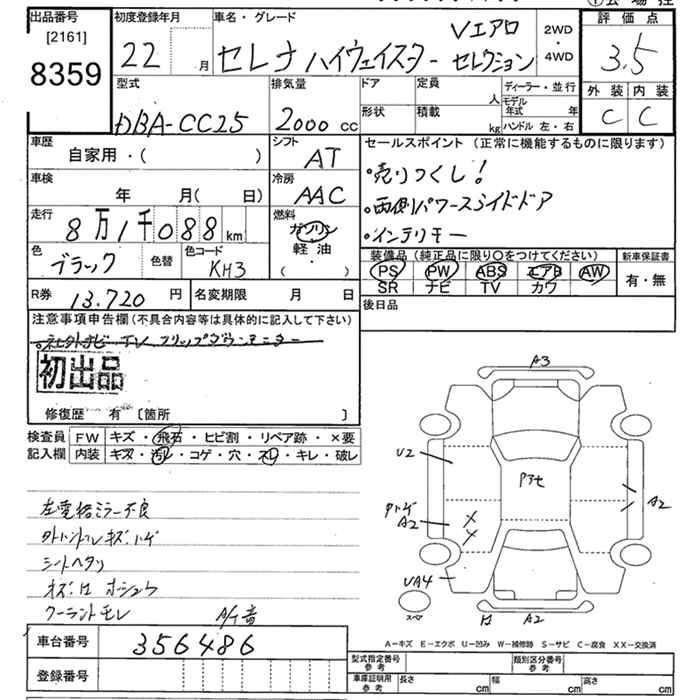 出品番号
[2161]
8359
初度登録年月
22 月
車名・グレード
セレナ ハイウェイスター Vエアロ セレクション
2WD
・
4WD
評価点
3.5
外装 内装
C C
型式
DBA-CC25
排気量
2000 cc
ドア
定員
人
形状
積載
kg
ディーラー・並行
モデル年式 年
ハンドル 左・右
車歴
自家用・( )
シフト
AT
車検
年 月( 日)
冷房
AAC
走行
8万1千088 km
燃料
ガソリン
・
軽油
( )
色
ブラック
色替
色コード
KH3
R券 13.720 円
名変期限 月 日
セールスポイント (正常に機能するものに限ります)
・売りつくし!
・両側パワースライドドア
・インテリキー
装備品 (純正品に限り○をつけてください)
PS PW ABS エアB AW
SR ナビ TV カワ
新車保証書
有・無
後日品
注意事項申告欄(不具合内容等は具体的に記入して下さい)
・社外ナビ TV フリップダウンモニター
初出品
修復歴 有 〔箇所 〕
検査員
記入欄
FW キズ・飛石・ヒビ割・リペア跡・×要
内装 キズ・汚レ・コゲ・穴・スレ・キレ・破レ
左電格ミラー不良
外ハンドルキズ ハゲ
シートヘタリ
クーラントモレ
A/T 音
A3
U2
Pアセ
A2
A2
UA4
スペア
A2
A-キズ E-エクボ U-凹み W-補修跡 S-サビ C-腐食 XX-交換済
車台番号 356486
登録番号
型式指定番号
参考
類別区分番号
参考
車庫証明用
参考
長さ cm 幅 cm 高さ cm